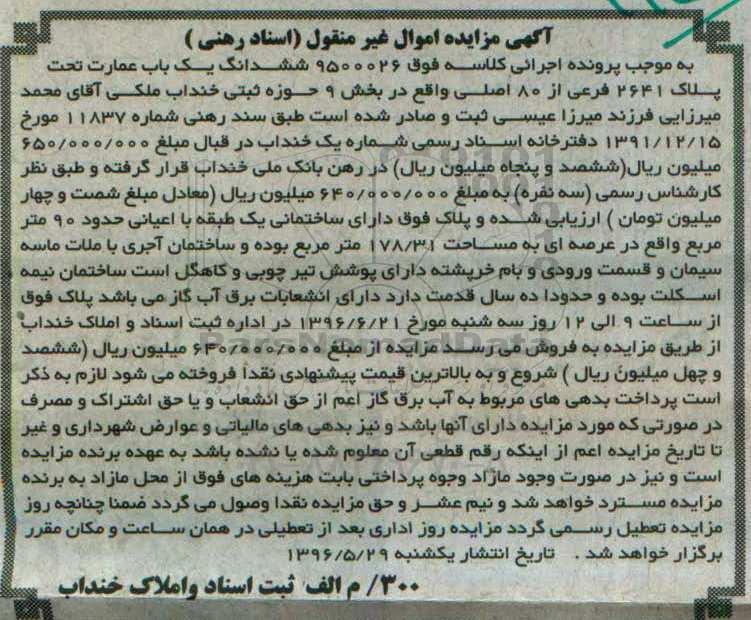 آگهی مزایده اموال غیر منقول (اسناد رهنی)
به موجب پرونده اجرائی کلاسه فوق ۹۵۰۰۰۲۶ ششدانگ یک باب عمارت تحت
پلاک ۲۶۴۱ فرعی از ۸۰ اصلی واقع در بخش ۹ حوزه ثبتی خنداب ملکی آقای محمد
میرزایی فرزند میرزا عیسی ثبت و صادر شده است طبق سند رهنی شماره ۱۱۸۳۷ مورخ
۱۳۹۱/۱۲/۱۵ دفترخانه اسناد رسمی شماره یک خنداب در قبال مبلغ ۶۵۰/۰۰۰/۰۰۰
میلیون ریال(ششصد و پنجاه میلیون ریال) در رهن بانک ملی خنداب قرار گرفته و طبق نظر
کارشناس رسمی (سه نفره) به مبلغ ۶۴۰/۰۰۰/۰۰۰ میلیون ریال (معادل مبلغ شصت و چهار
میلیون تومان ) ارزیابی شده و پلاک فوق دارای ساختمانی یک طبقه با اعیانی حدود ۹۰ متر
مربع واقع در عرصه ای به مساحت ۱۷۸/۳۱ متر مربع بوده و ساختمان آجری با ملات ماسه
سیمان و قسمت ورودی و بام خرپشته دارای پوشش تیر چوبی و کاهگل است ساختمان نیمه
اسکلت بوده و حدودا ده سال قدمت دارد دارای انشعابات برق آب گاز می باشد پلاک فوق
از ساعت ۹ الی ۱۲ روز سه شنبه مورخ ۱۳۹۶/۶/۲۱ در اداره ثبت اسناد و املاک خنداب
از طریق مزایده به فروش می رسد مزایده از مبلغ ۶۴۰/۰۰۰/۰۰۰ میلیون ریال (ششصد
و چهل میلیون ریال ) شروع و به بالاترین قیمت پیشنهادی نقداً فروخته می شود لازم به ذکر
است پرداخت بدهی های مربوط به آب برق گاز اعم از حق انشعاب و یا حق اشتراک و مصرف
در صورتی که مورد مزایده دارای آنها باشد و نیز بدهی های مالیاتی و عوارض شهرداری و غیر
تا تاریخ مزایده اعم از اینکه رقم قطعی آن معلوم شده یا نشده باشد به عهده برنده مزایده
است و نیز در صورت وجود مازاد وجوه پرداختی بابت هزینه های فوق از محل مازاد به برنده
مزایده مسترد خواهد شد و نیم عشر و حق مزایده نقدا وصول می گردد ضمنا چنانچه روز
مزایده تعطیل رسمی گردد مزایده روز اداری بعد از تعطیلی در همان ساعت و مکان مقرر
برگزار خواهد شد . تاریخ انتشار یکشنبه ۱۳۹۶/۵/۲۹
۳۰۰/ م الف ثبت اسناد واملاک خنداب
ParsNamadData